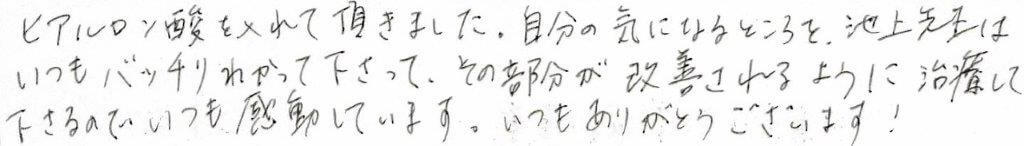 ヒアルロン酸を入れて頂きました。自分の気になるところを、池上先生は
いつもバッチリわかって下さって、その部分が改善されるように治療して
下さるのでいつも感動しています。いつもありがとうございます！